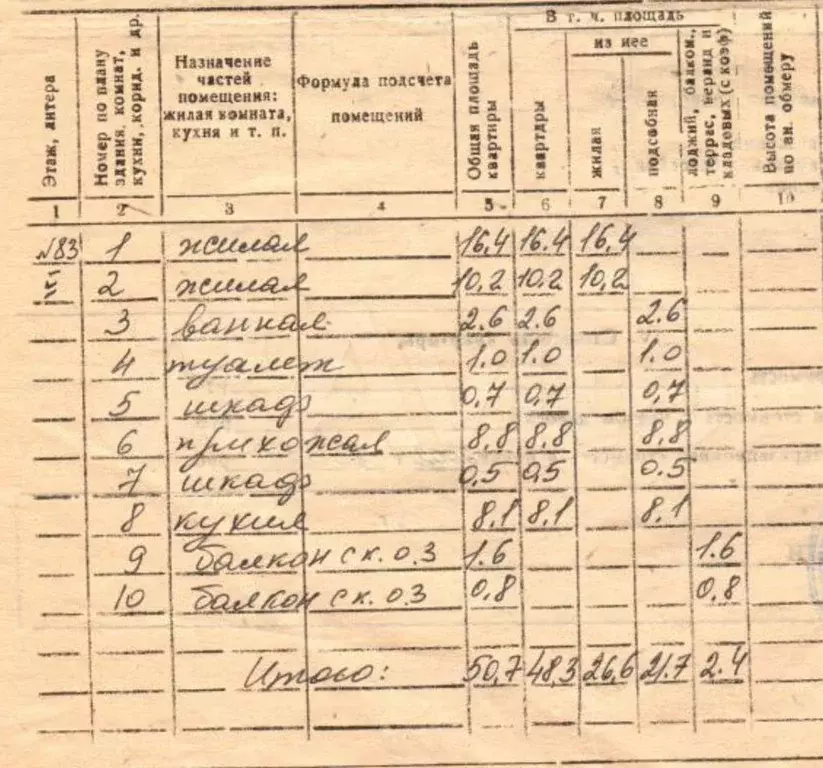 Этаж, литера
Номер по плану здания, комнат, кухни, корид. и др.
Назначение частей помещения: жилая комната, кухня и т. п.
Формула подсчета помещений
Общая площадь квартиры
В т. ч. площадь
квартиры
из нее
жилая
подсобная
лоджий, балкон., террас, веранд и кладовых (с коэф)
Высота помещений по вн. обмеру
1 2 3 4 5 6 7 8 9 10
№83 1 жилая 16.4 16.4 16.4
2 жилая 10,2 10,2 10,2
3 ванная 2.6 2.6 2.6
4 туалет 1.0 1.0 1.0
5 шкаф 0,7 0,7 0,7
6 прихожая 8,8 8,8 8,8
7 шкаф 0,5 0,5 0.5
8 кухня 8,1 8,1 8,1
9 балкон с к. 0.3 1.6 1.6
10 балкон с к. 0.3 0,8 0,8
Итого: 50,7 48,3 26,6 21.7 2.4